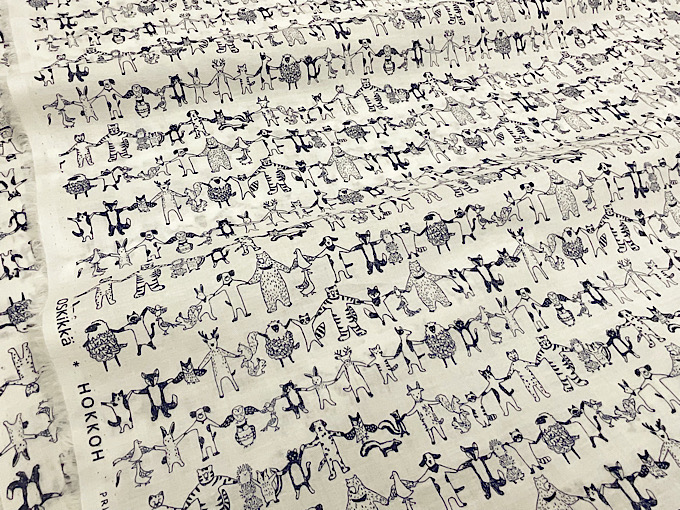 oskikkä * HOKKOH PRI